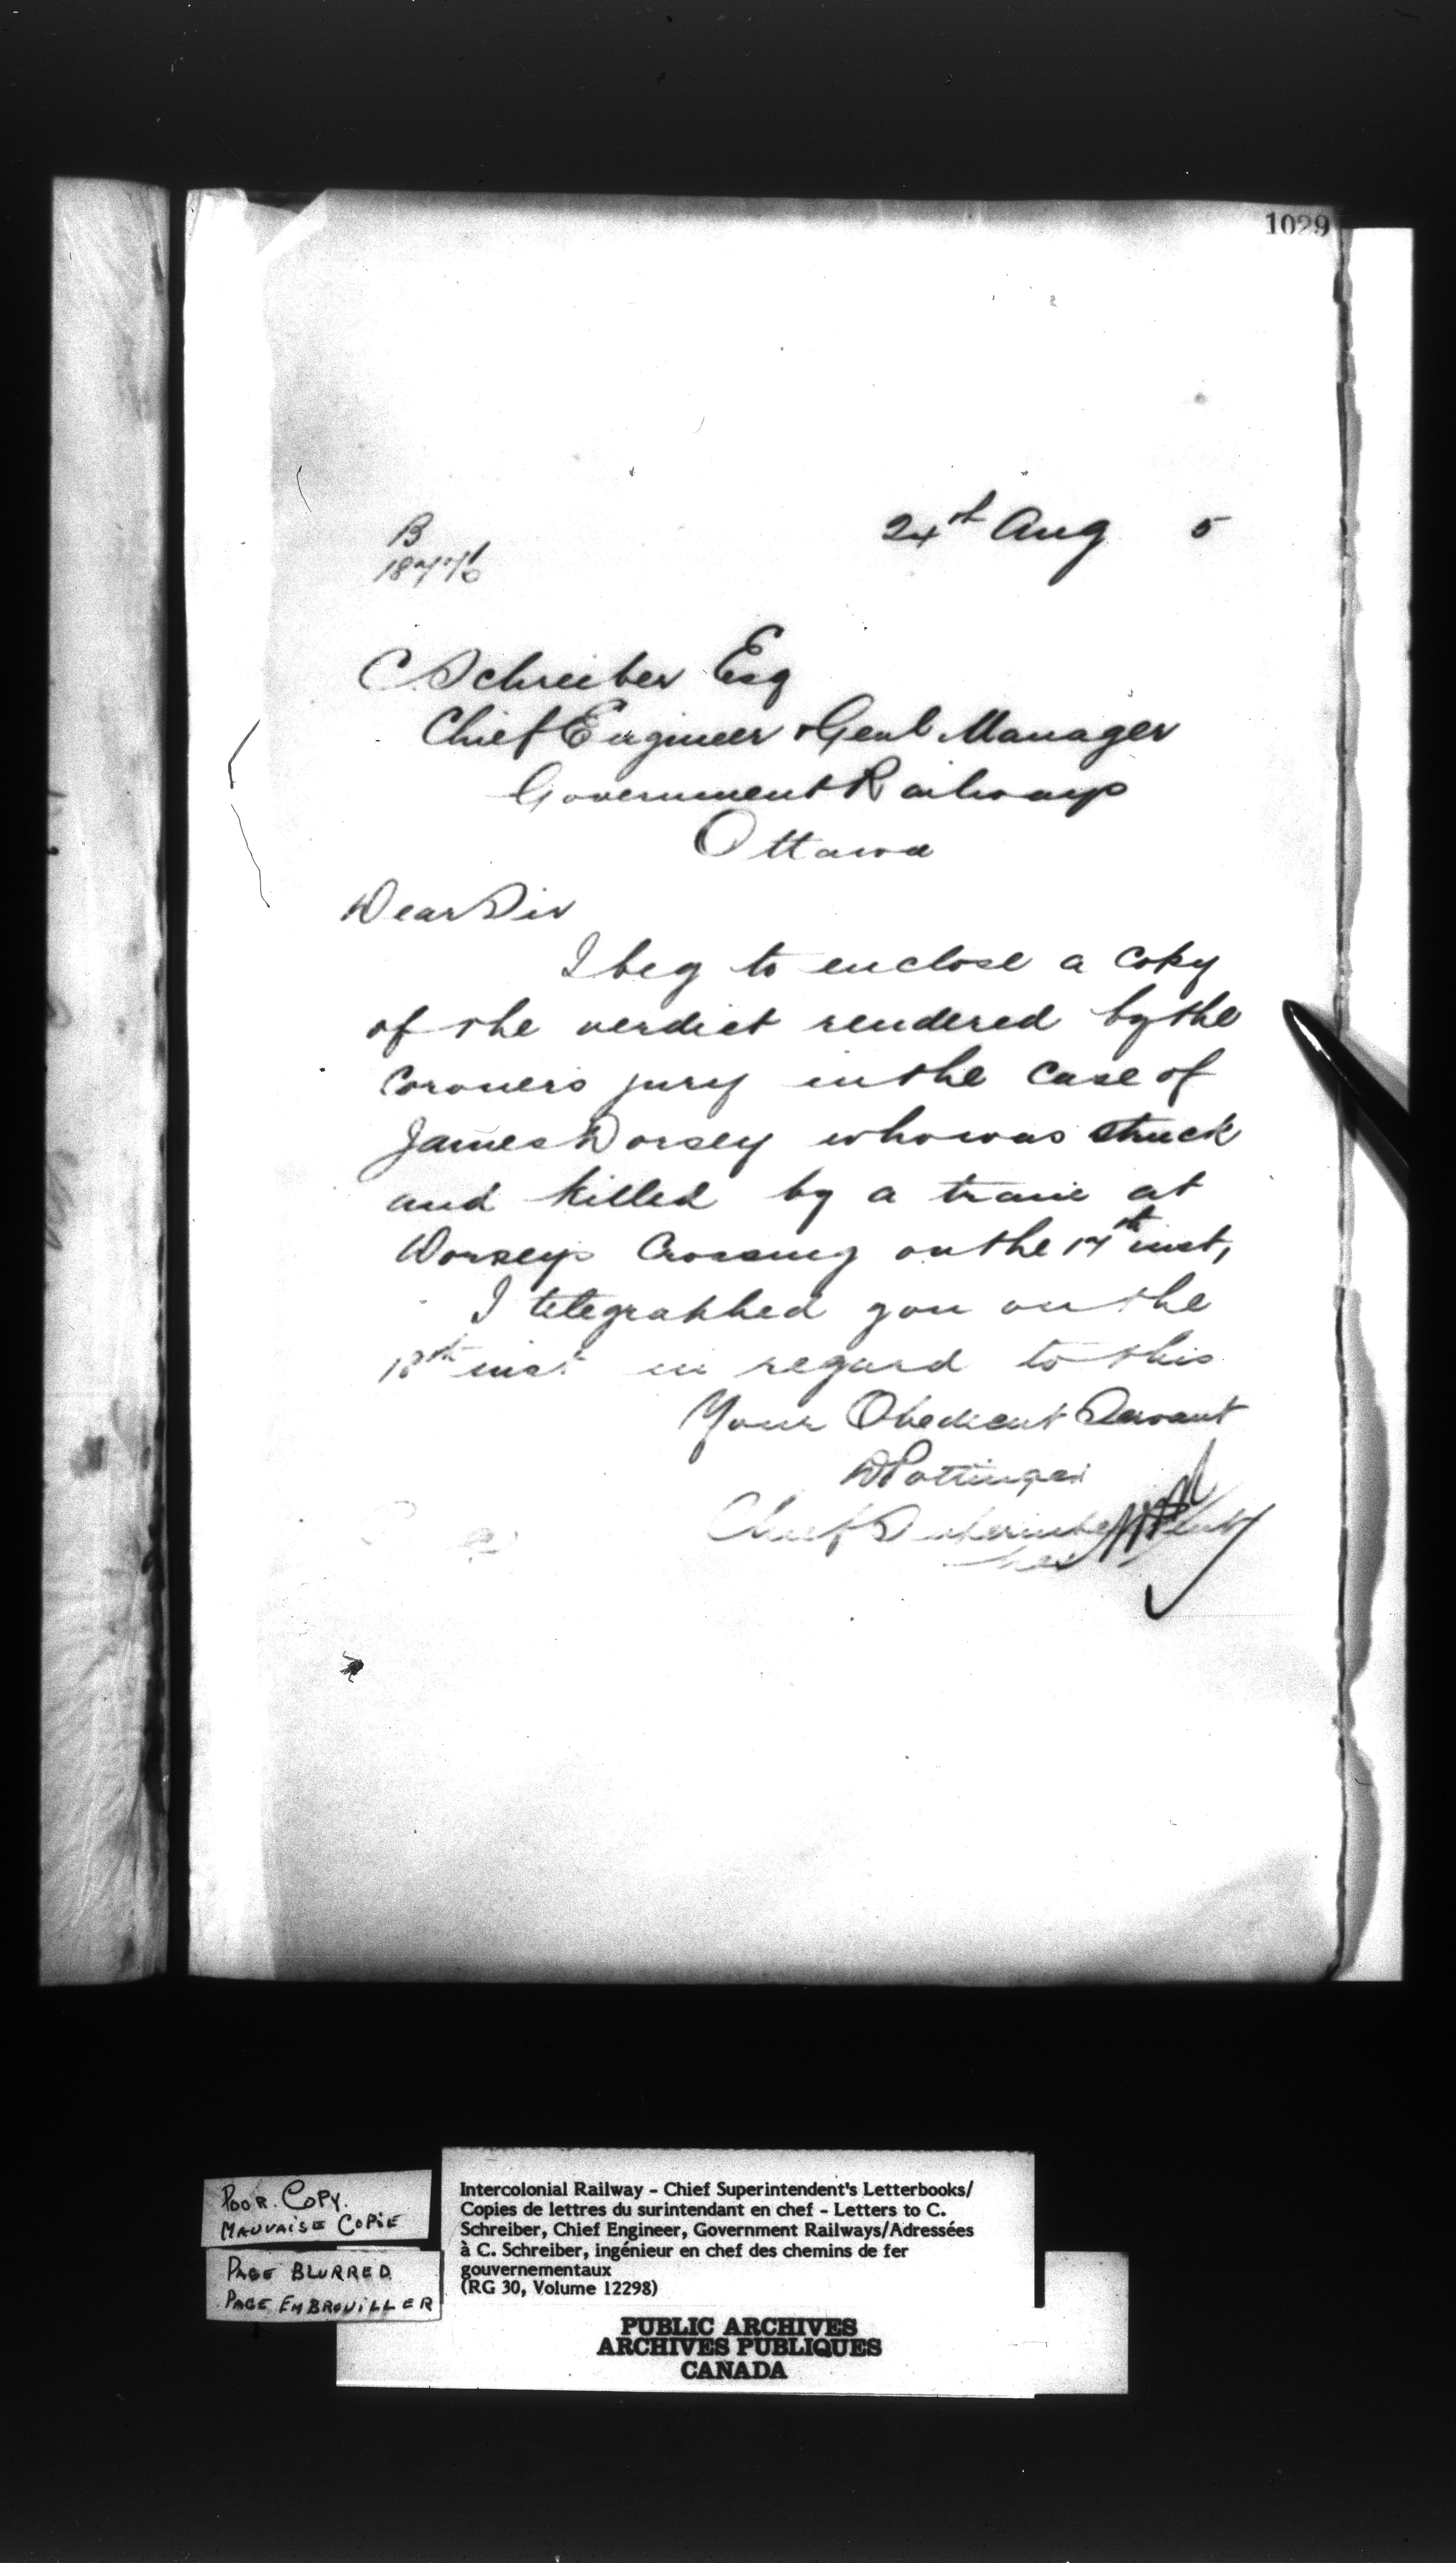 1029
24th Aug 5
B
C Schreiber Esq
Chief Engineer & Genl Manager
Government Railways
Ottawa
Dear Sir
I beg to enclose a copy
of the verdict rendered by the
Coroners jury in the case of
James Dorsey who was struck
and killed by a train at
Dorseys Crossing on the 17th inst,
I telegraphed you on the
18th inst in regard to this
Your Obedient Servant
D Pottinger
Chief Superintendent
POOR COPY.
MAUVAISE COPIE
PAGE BLURRED
PAGE EMBROUILLER
Intercolonial Railway - Chief Superintendent's Letterbooks/
Copies de lettres du surintendant en chef - Letters to C.
Schreiber, Chief Engineer, Government Railways/Adressées
à C. Schreiber, ingénieur en chef des chemins de fer
gouvernementaux
(RG 30, Volume 12298)
PUBLIC ARCHIVES
ARCHIVES PUBLIQUES
CANADA